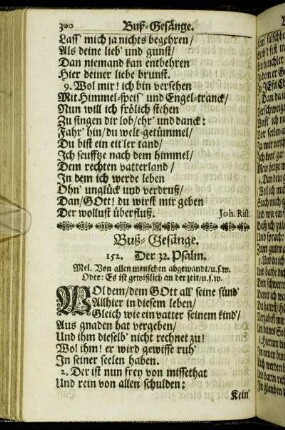 300 Buß-Gesänge.
Lass' mich ja nichts begehren/
Als deine lieb' und gunst/
Dan niemand kan entbehren
Hier deiner liebe brunst.
9. Wol mir! ich bin versehen
Mit Himmel-speis' und Engel-tranck/
Nun will ich frölich stehen
Zu singen dir lob/ehr' und danck:
Fahr' hin/du welt-getümmel/
Du bist ein eit'ler tand/
Ich seufftze nach dem himmel/
Dem rechten vatterland/
In dem ich werde leben
Ohn' unglück und verdruß/
Dan/GOtt! du wirst mir geben
Der wollust überfluß. Joh. Rist.
Buß-Gesänge.
152. Der 32. Psalm.
Mel. Von allen menschen abgewandt/u.s.w.
Oder: Es ist gewißlich an der zeit/u.s.w.
WOl dem/dem GOtt all' seine sünd'
Allhier in diesem leben/
Gleich wie ein vatter seinem kind'/
Aus gnaden hat vergeben/
Und ihm dieselb' nicht rechnet zu!
Wol ihm! er wird gewisse ruh'
In seiner seelen haben.
2. Der ist nun frey von missethat
Und rein von allen schulden:
Kein'